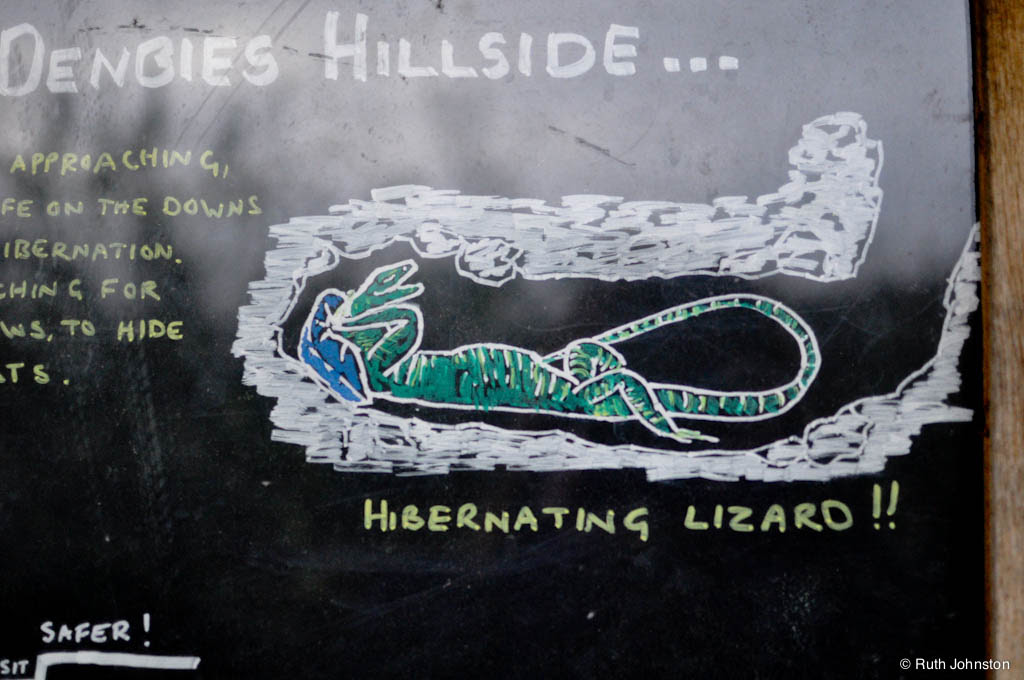 DENBIES HILLSIDE...
APPROACHING,
FE ON THE DOWNS
IBERNATION.
CHING FOR
WS, TO HIDE
TS.
HIBERNATING LIZARD!!
SAFER!
SIT
© Ruth Johnston